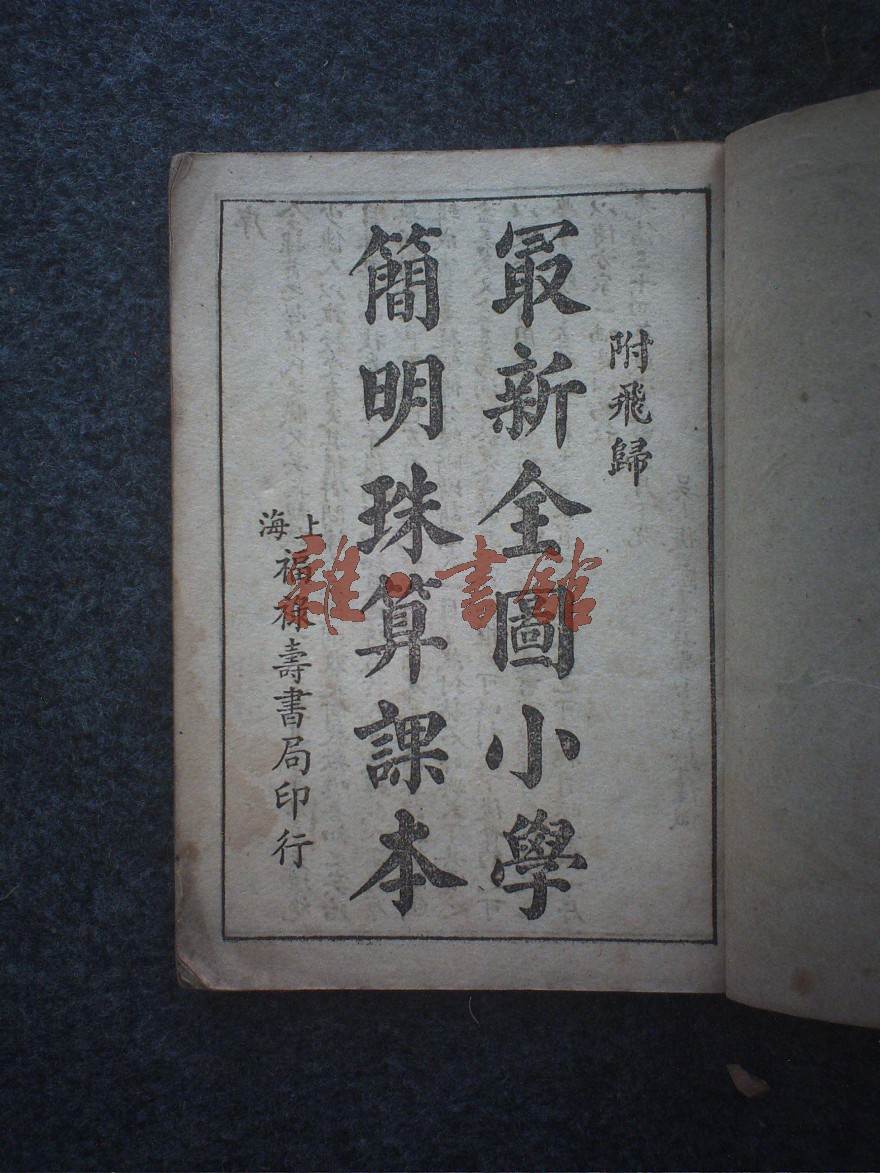 附飛歸
最新全圖小學
簡明珠算課本
上海福祿壽書局印行
雜·書館